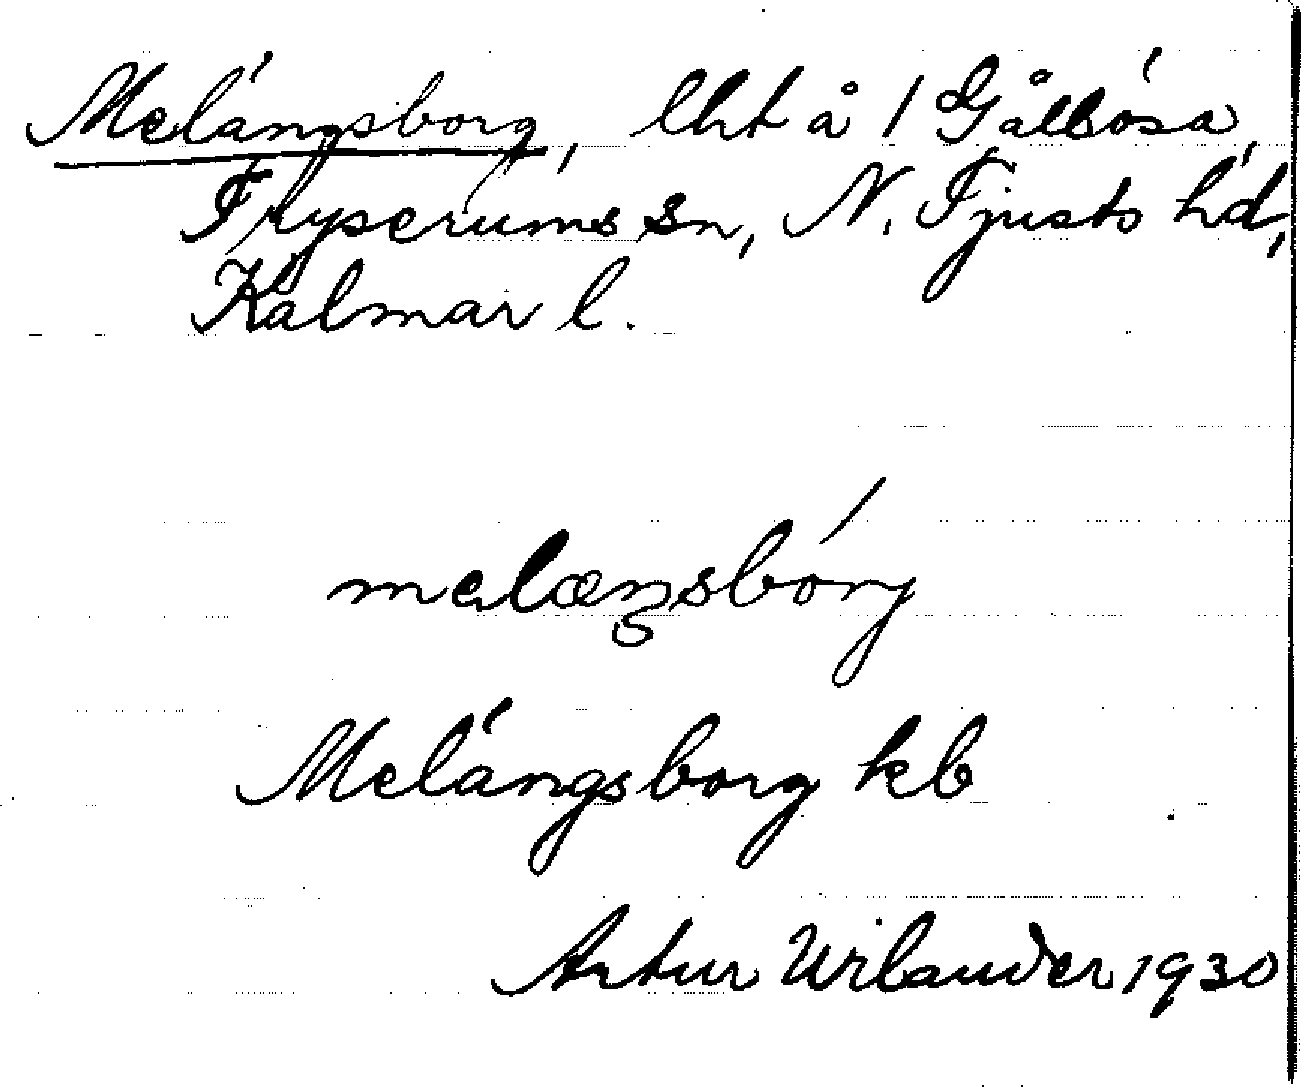 Melángsborg, lht å 1 Gålbósa,
Fryserums sn, N. Tjusts hd,
Kalmar l.
melæŋsbórj
Melángsborg kb
Artur Wilander 1930